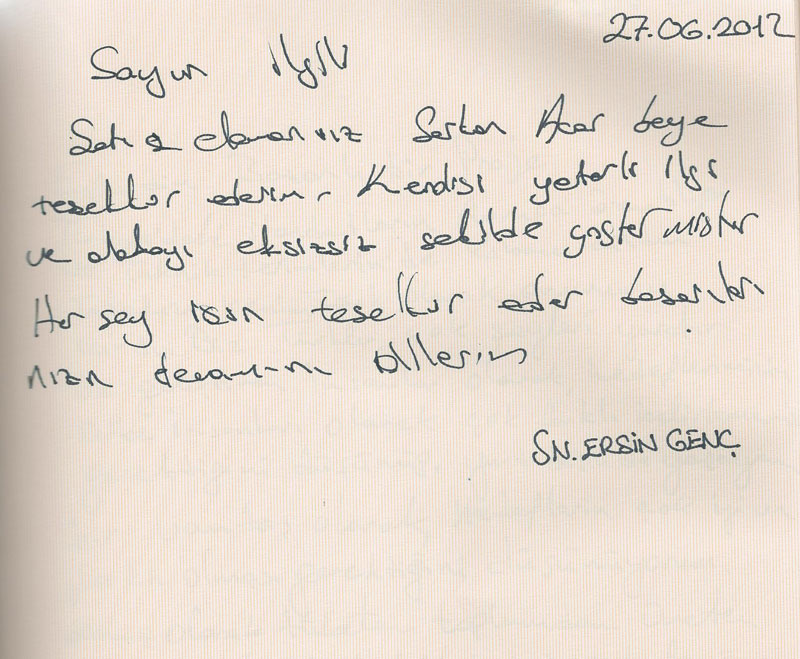 27.06.2012
Sayın ilgili
Satış elemanınız Serkan Acar beye
teşekkür ederim. Kendisi yeterli ilgi
ve alakayı eksizsiz sekilde göstermiştir
Her şey için teşekkür eder başarıları
nızın devamını dilerim
SN. ERSİN GENÇ